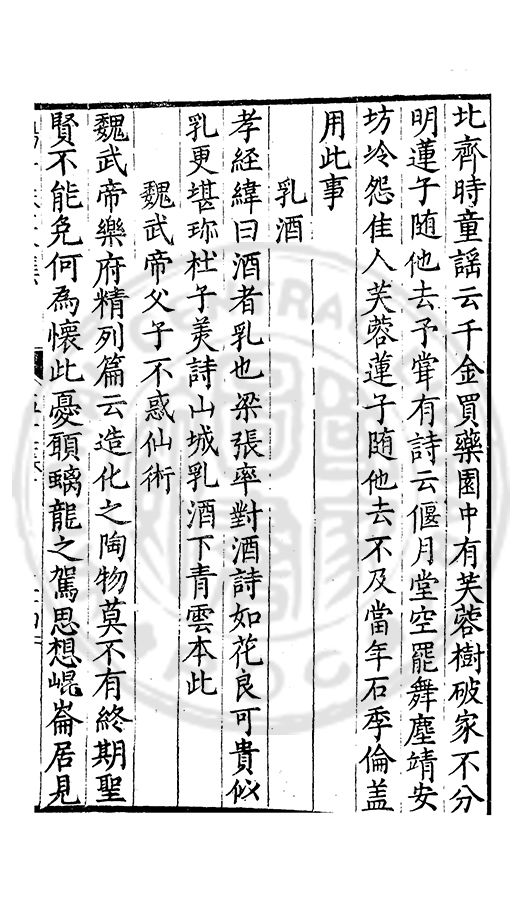 北齊時童謡云千金買藥園中有芙蓉樹破家不分
明蓮子随他去予甞有詩云偃月堂空罷舞塵靖安
坊冷怨佳人芙蓉蓮子随他去不及當年石季倫盖
用此事
乳酒
孝經緯曰酒者乳也梁張率對酒詩如花良可貴似
乳更堪珎杜子美詩山城乳酒下青雲本此
魏武帝父子不惑仙術
魏武帝樂府精列篇云造化之陶物莫不有終期聖
賢不能免何為懷此憂願螭龍之駕思想崐崙居見